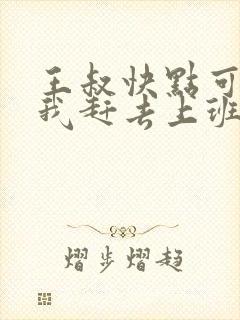 王叔快點可
我赶去上班
熠步熠趨